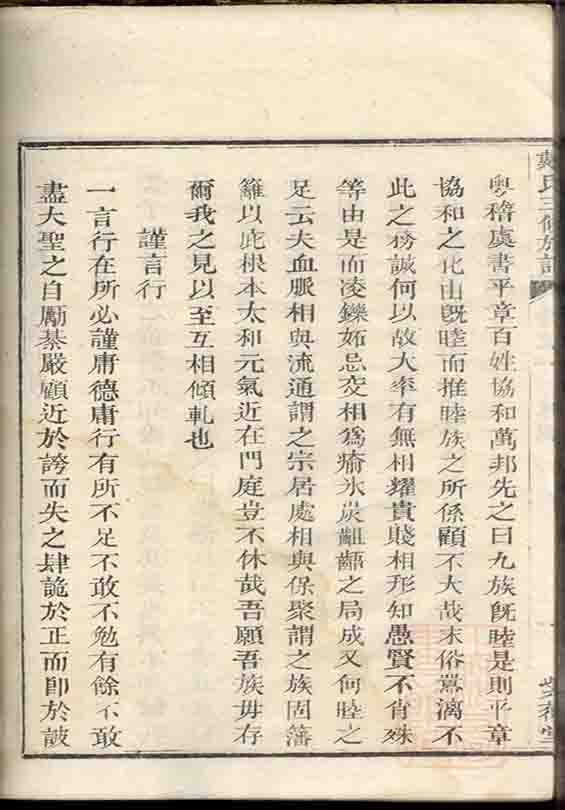 氏三修族譜
粵稽虞書平章百姓協和萬邦先之曰九族旣睦是則平章
協和之化由旣睦而推睦族之所係顧不大哉末俗澆漓不
此之務誠何以故大率有無相耀貴賤相形知愚賢不肖殊
等由是而凌鑠妬忌交相爲瘉氷炭齟齬之局成又何睦之
足云夫血脈相與流通謂之宗居處相與保聚謂之族固藩
籬以庇根本太和元氣近在門庭豈不休哉吾願吾族毋存
爾我之見以至互相傾軋也
謹言行
一言行在所必謹庸德庸行有所不足不敢不勉有餘不敢
盡大聖之自勵綦嚴顧近於誇而失之肆詭於正而卽於詖